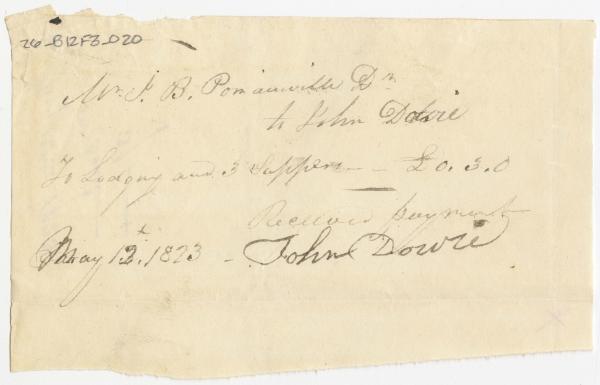 26_B12F3_D20
Mr. J. B. Pomainville Dr
to John Dowie
To Lodging and 3 Suppers — £0.3.0
Received payment
May 12t. 1823 - John Dowie